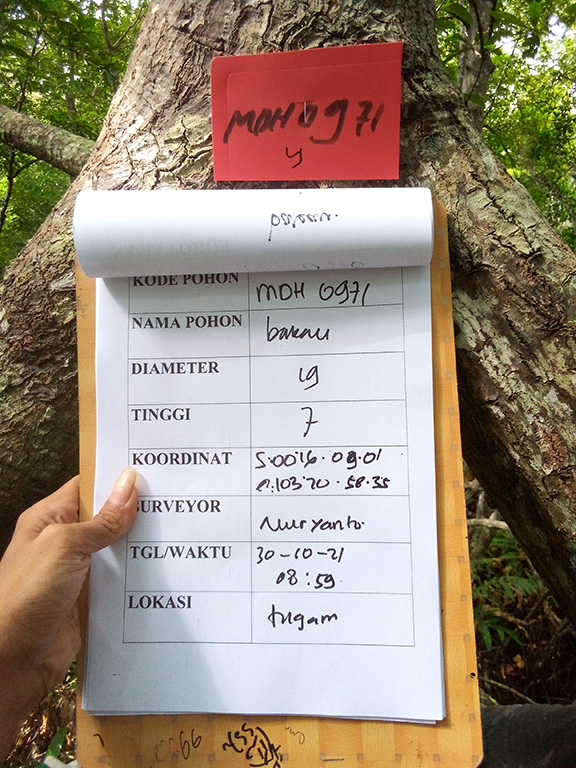 MDH 0971
KODE POHON MDH 0971
NAMA POHON bakau
DIAMETER 19
TINGGI 7
KOORDINAT S.0016.09.01
e.103 20.58.35
SURVEYOR Nuryanto.
TGL/WAKTU 30-10-21
08:59
LOKASI tugam